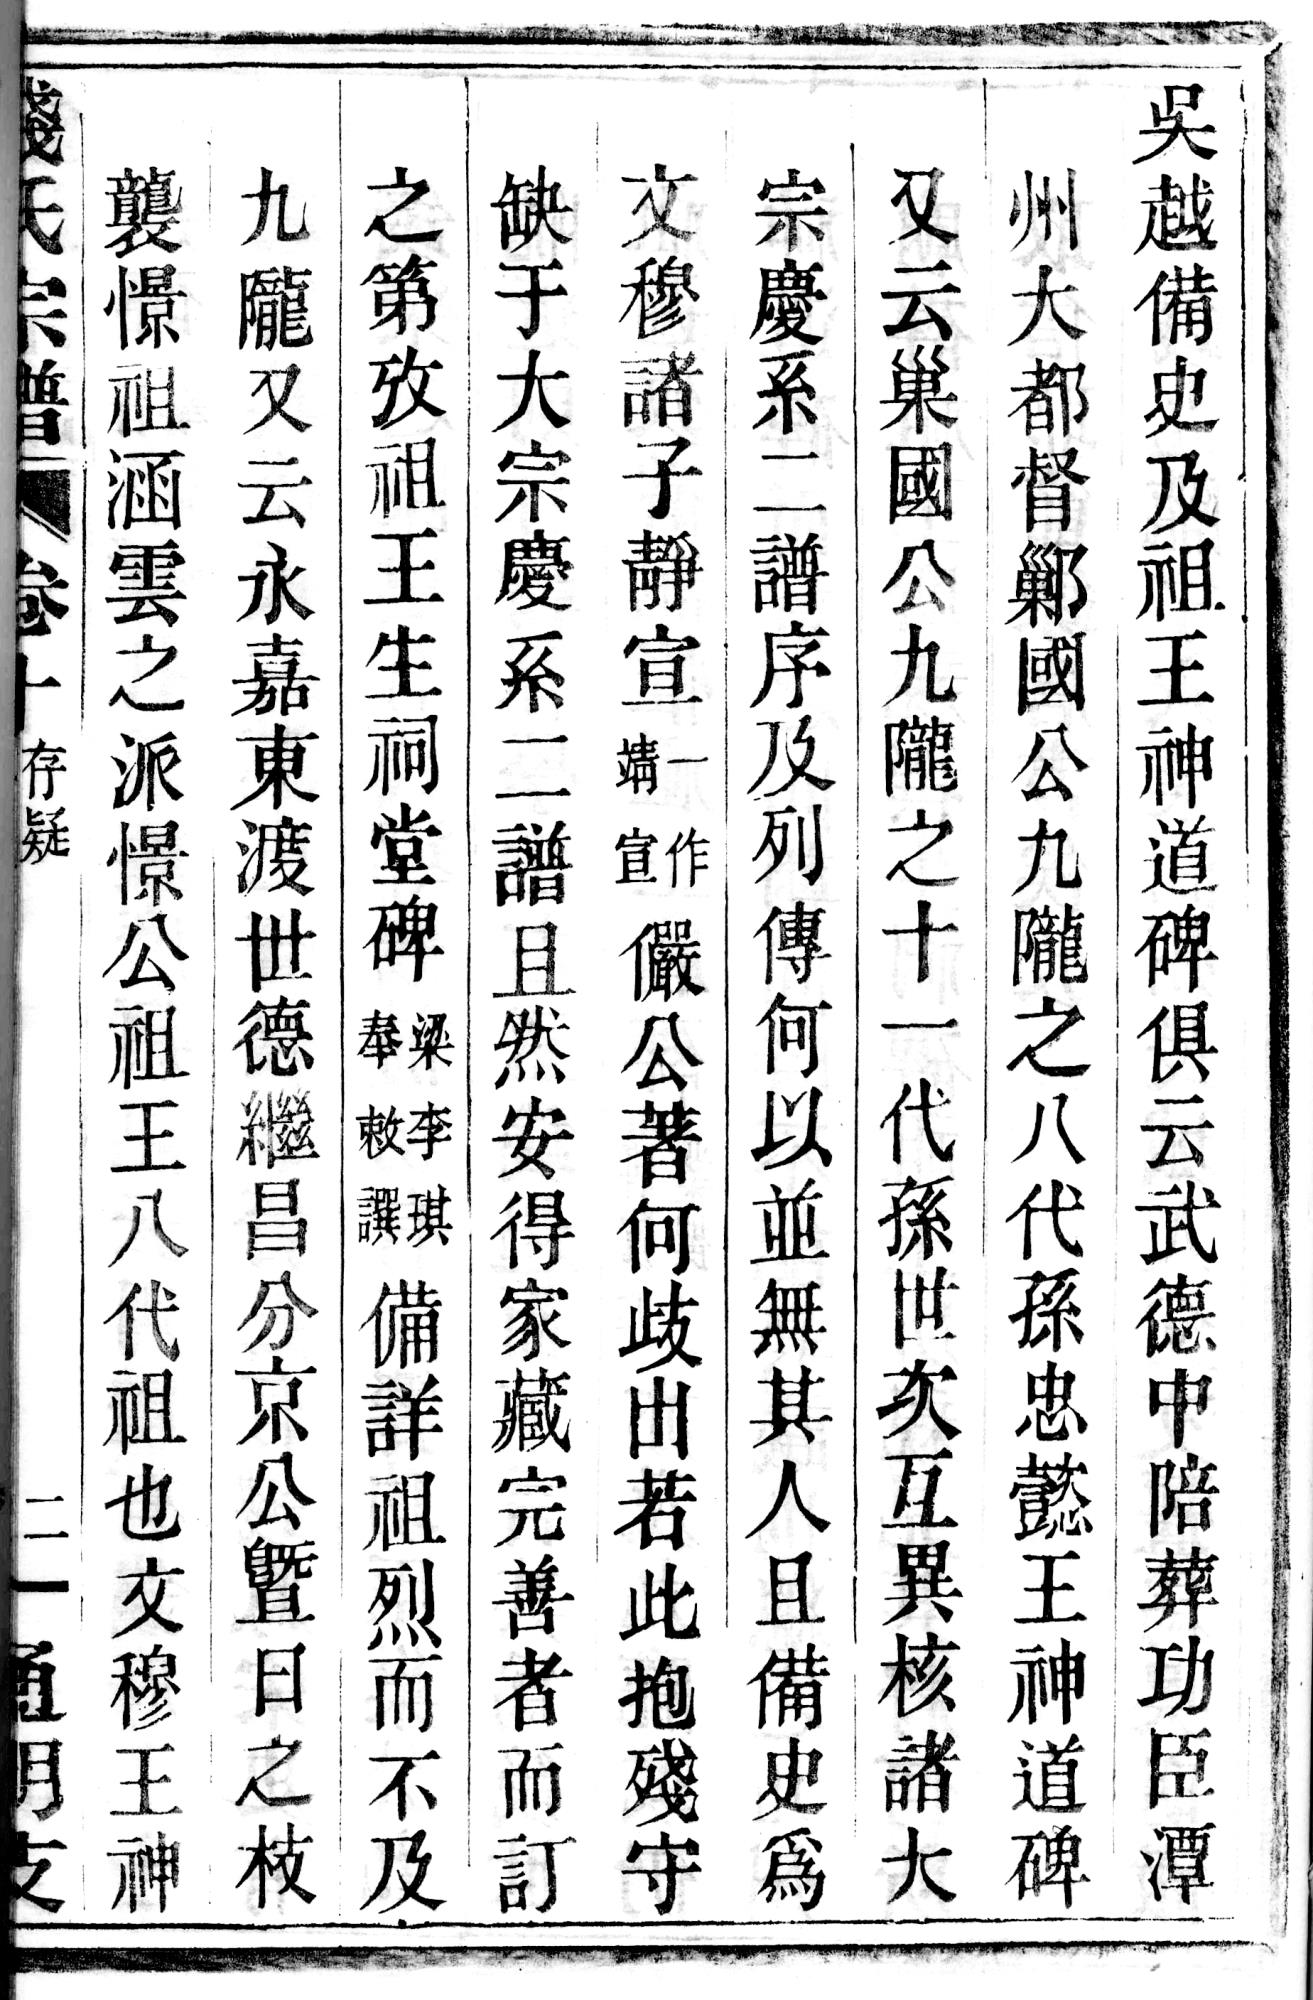 吳越備史及祖王神道碑俱云武德中陪葬功臣潭
州大都督鄛國公九隴之八代孫忠懿王神道碑
又云巢國公九隴之十一代孫世次互異核諸大
宗慶系二譜序及列傳何以並無其人且備史爲
文穆諸子靜宣一作靖宣儼公著何歧出若此抱殘守
缺于大宗慶系二譜且然安得家藏完善者而訂
之第攷祖王生祠堂碑梁李琪奉敕譔備詳祖烈而不及
九隴又云永嘉東渡世德繼昌分京公曁日之枝
襲憬祖涵雲之派憬公祖王八代祖也文穆王神
錢氏宗譜 卷十 存疑 二 通明支